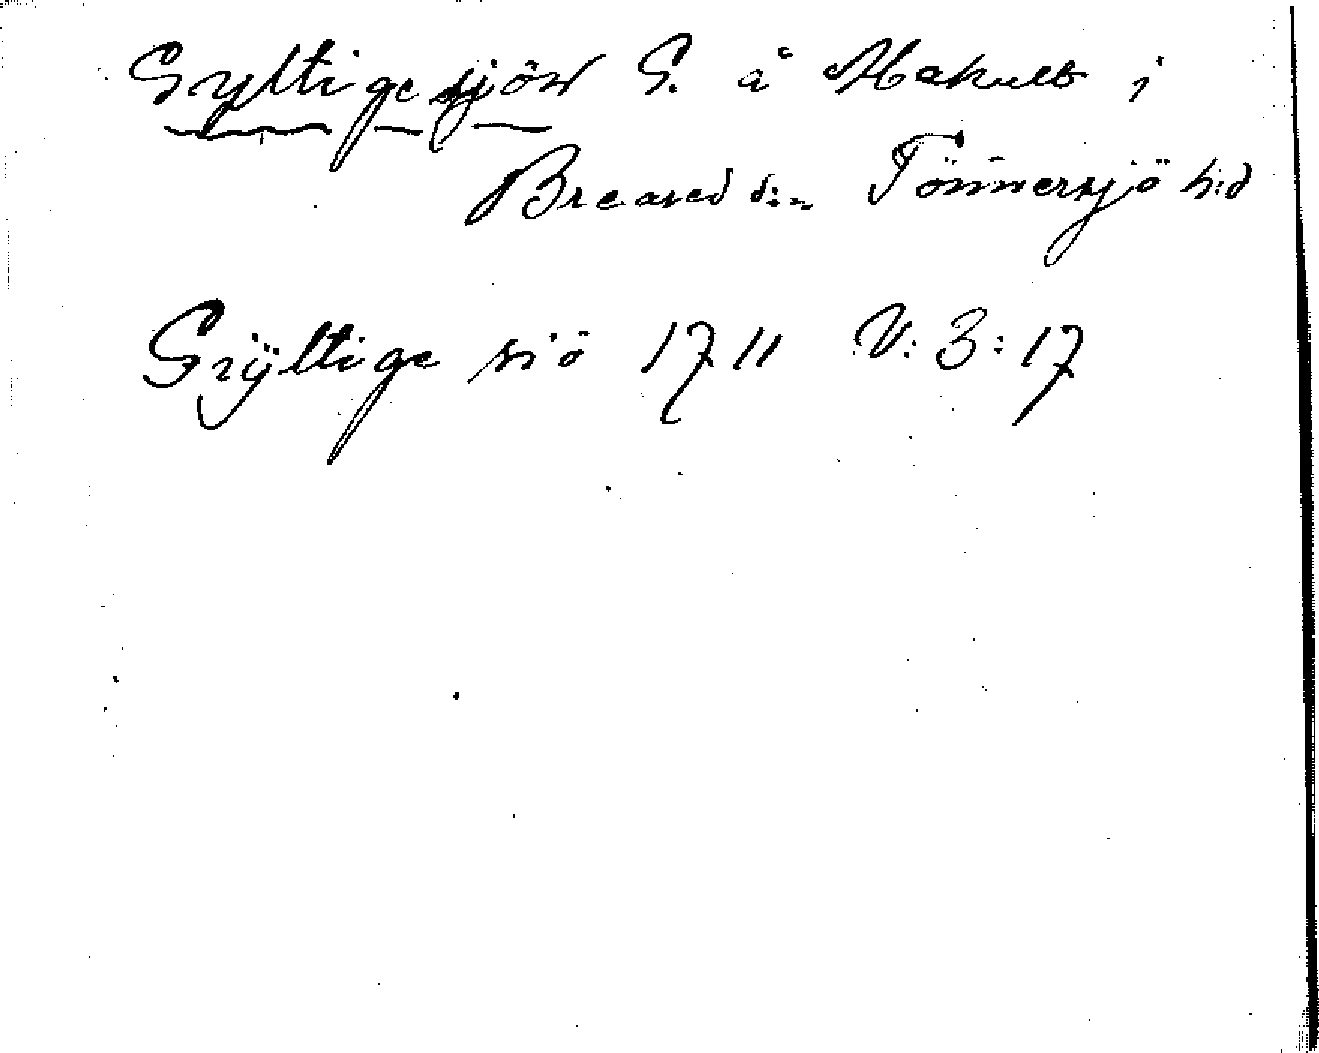 Gyltigesjön S. å Mahult i
Breared s:n Tönnersjö h:d
Gÿltige siö 1711 V:3:17